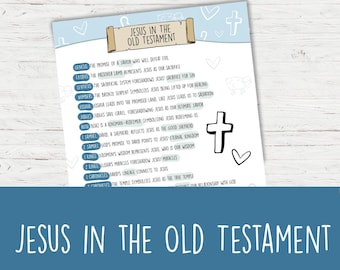 JESUS IN THE
OLD TESTAMENT
GENESIS THE PROMISE OF A SAVIOR WHO WILL DEFEAT EVIL
EXODUS THE PASSOVER LAMB REPRESENTS JESUS AS OUR SACRIFICE
LEVITICUS THE SACRIFICIAL SYSTEM FORESHADOWS JESUS' SACRIFICE FOR SIN
NUMBERS THE BRONZE SERPENT SYMBOLIZES JESUS BEING LIFTED UP FOR HEALING
JOSHUA JOSHUA LEADS INTO THE PROMISED LAND, LIKE JESUS LEADS US TO SALVATION
JUDGES JUDGES SAVE ISRAEL, FORESHADOWING JESUS AS OUR ULTIMATE JUDGE
RUTH BOAZ IS A KINSMAN-REDEEMER SYMBOLIZING JESUS REDEEMING US
1 SAMUEL DAVID A SHEPHERD, REFLECTS JESUS AS THE GOOD SHEPHERD
2 SAMUEL GOD'S PROMISE TO DAVID POINTS TO JESUS' ETERNAL KINGDOM
1 KINGS SOLOMON'S WISDOM REPRESENTS JESUS, WHO IS OUR WISDOM
2 KINGS ELIJAH'S MIRACLES FORESHADOW JESUS' MIRACLES
1 CHRONICLES DAVID'S LINEAGE CONNECTS TO JESUS
THE TEMPLE SYMBOLIZES JESUS AS THE TRUE TEMPLE
RELATIONSHIP WITH GOD
JESUS IN THE OLD TESTAMENT